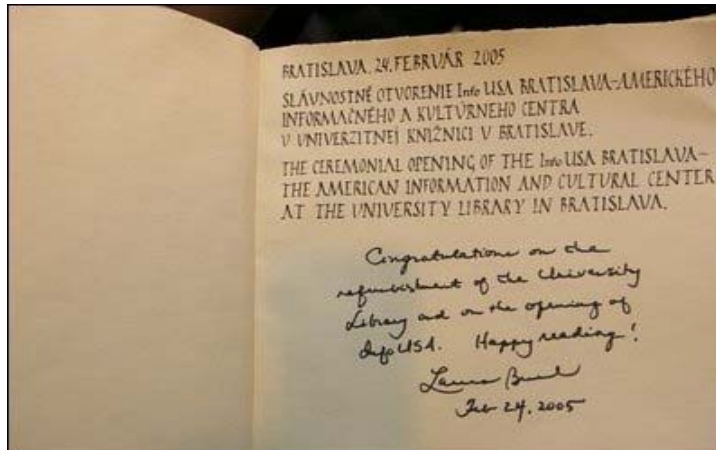 BRATISLAVA, 24. FEBRUÁR 2005
SLÁVNOSTNÉ OTVORENIE Info USA BRATISLAVA-AMERICKÉHO
INFORMAČNÉHO A KULTÚRNEHO CENTRA
V UNIVERZITNEJ KNIŽNICI V BRATISLAVE.
THE CEREMONIAL OPENING OF THE Info USA BRATISLAVA-
THE AMERICAN INFORMATION AND CULTURAL CENTER
AT THE UNIVERSITY LIBRARY IN BRATISLAVA.
Congratulations on the
refurbishment of the University
Library and on the opening of
InfoUSA. Happy reading!
Laura Bush
Feb 24, 2005